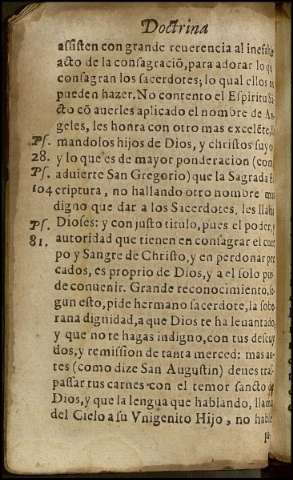 Doctrina
assisten con grande reuerencia al inefab
acto de la consagraciõ, para adorar lo q̃
consagran los sacerdotes; lo qual ellos no
pueden hazer. No contento el Espiritu Sã
cto cõ auerles aplicado el nombre de An
geles, les honra con otro mas excelẽte, lla
Ps. mandolos hijos de Dios, y christos suyo
28. y lo que es de mayor ponderacion (con
Ps. aduierte San Gregorio) que la Sagrada E
104 criptura, no hallando otro nombre mas
digno que dar a los Sacerdotes, les llama
Ps. Dioses: y con justo titulo, pues el poder, y
81. autoridad que tienen en consagrar el cuer
po y Sangre de Christo, y en perdonar pe
cados, es proprio de Dios, y a el solo pue
de conuenir. Grande reconocimiento, se
gun esto, pide hermano sacerdote, la sobe
rana dignidad, a que Dios te ha leuantado
y que no te hagas indigno, con tus descuy
dos, y remission de tanta merced: mas an
tes (como dize San Augustin) deues tras
passar tus carnes con el temor sancto de
Dios, y que la lengua que hablando, llama
del Cielo a su Vnigenito Hijo, no hable